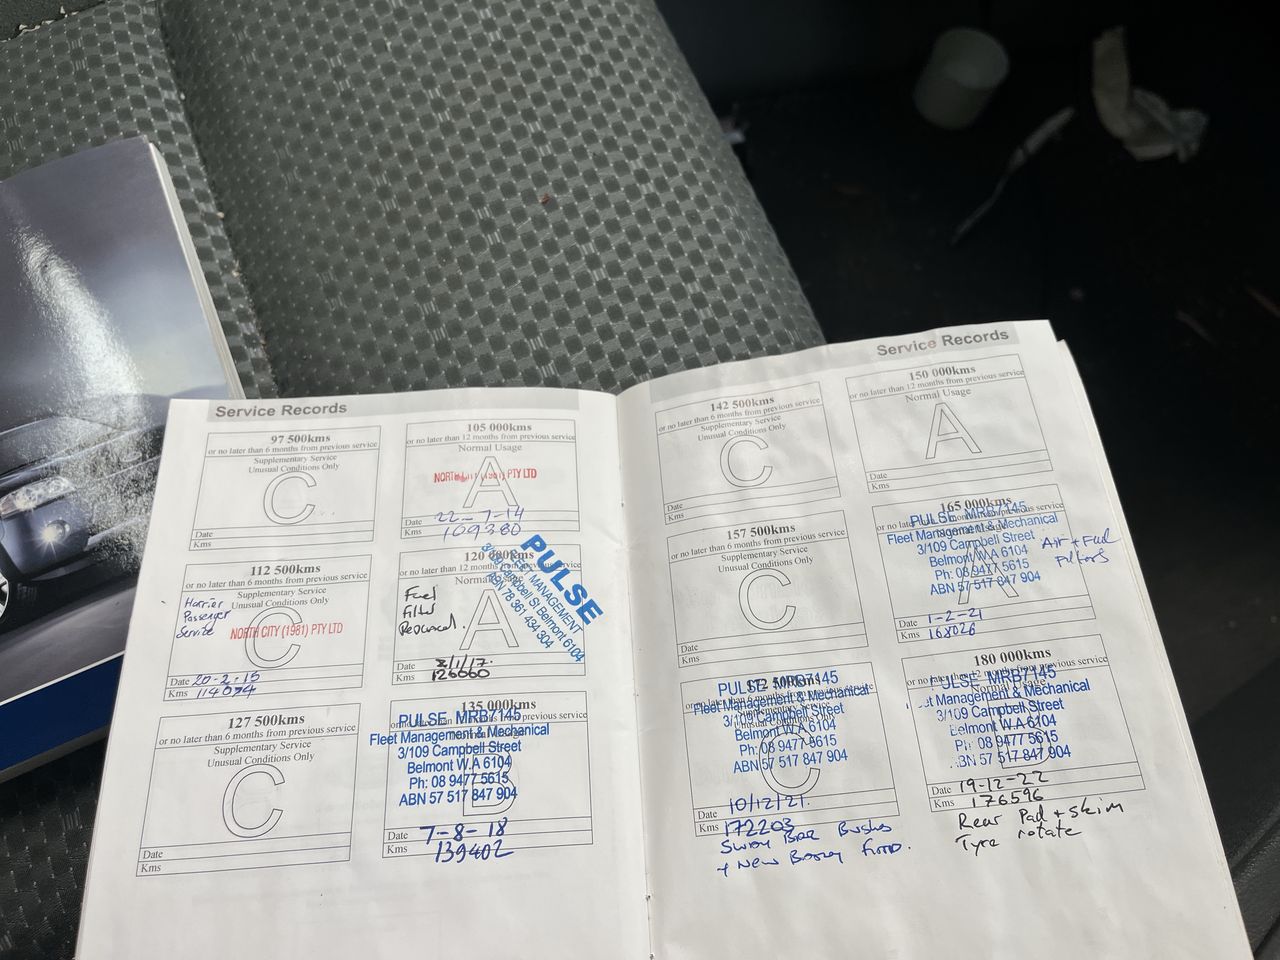 Service Records
97 500kms
or no later than 6 months from previous service
Supplementary Service
Unusual Conditions Only
C
Date
Kms
105 000kms
or no later than 12 months from previous service
Normal Usage
A
NORTH CITY (1981) PTY LTD
Date 22-7-14
Kms 109380
112 500kms
or no later than 6 months from previous service
Supplementary Service
Unusual Conditions Only
C
Passenger
Service
NORTH CITY (1981) PTY LTD
Date 20-2-15
Kms
120 000kms
or no later than 12 months from previous service
Normal
A
Fuel
Filter
PULSE
MANAGEMENT
Campbell St Belmont 6104
78 361 434 304
Date 8/1/17.
Kms 126060
127 500kms
or no later than 6 months from previous service
Supplementary Service
Unusual Conditions Only
C
Date
Kms
135 000kms
previous service
PULSE MRB7145
Fleet Management & Mechanical
3/109 Campbell Street
Belmont W.A 6104
Ph: 08 9477 5615
ABN 57 517 847 904
Date 7-8-18
Kms 139402
Service Records
142 500kms
or no later than 6 months from previous service
Supplementary Service
Unusual Conditions Only
C
Date
Kms
150 000kms
or no later than 12 months from previous service
Normal Usage
A
Date
Kms
157 500kms
or no later than 6 months from previous service
Supplementary Service
Unusual Conditions Only
C
Date
Kms
165 000kms
PULSE MRB7145
Fleet Management & Mechanical
3/109 Campbell Street
Belmont W.A 6104
Ph: 08 9477 5615
ABN 57 517 847 904
A
Air + Fuel
Filters
Date 1-2-21
Kms 168026
172 500kms
PULSE MRB7145
Fleet Management & Mechanical
3/109 Campbell Street
Belmont W.A 6104
Ph: 08 9477 5615
ABN 57 517 847 904
C
Date 10/12/21.
Kms 172203
Sway Bar Bushes
+ New Battery Fitted.
180 000kms
or no later than 12 months from previous service
Normal Usage
PULSE MRB7145
Fleet Management & Mechanical
3/109 Campbell Street
Belmont W.A 6104
Ph: 08 9477 5615
ABN 57 517 847 904
Date 19-12-22
Kms 176596
Rear Pad + skim
Tyre rotate